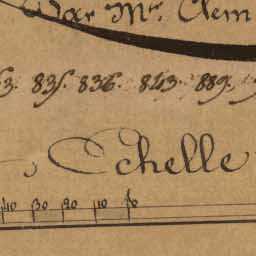 Par Mr. Clem
3. 835. 836. 843. 889.
Echelle
40 30 20 10 0